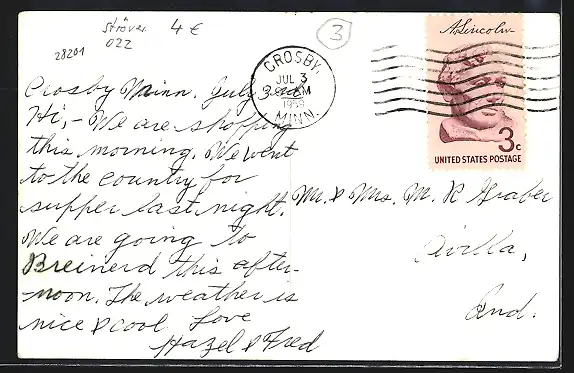 Ströver 4 €
28201 022
3
CROSBY,
JUL 3
AM
1959
MINN.
A. Lincoln
3c
UNITED STATES POSTAGE
Crosby Minn. July 3rd
Hi,- We are shopping
this morning. We went
to the country for
supper last night.
We are going to
Breinerd this after-
noon. The weather is
nice & cool. Love
Hazel & Fred
Mr. & Mrs. M. R Graber
Avilla,
Ind.